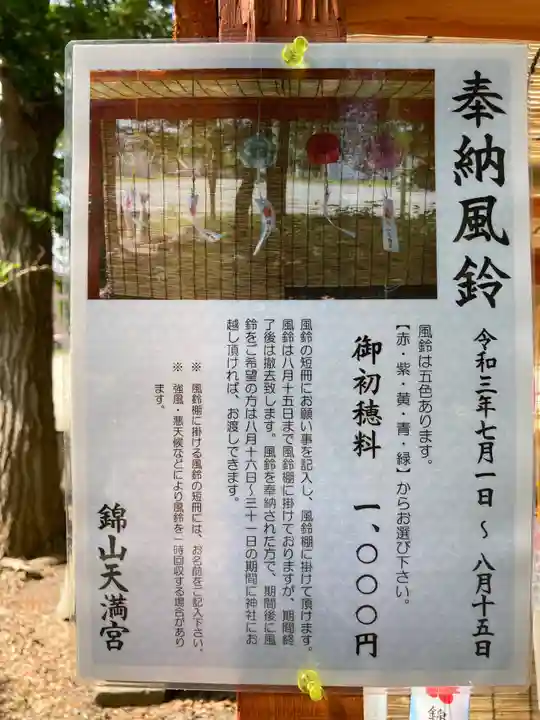 奉納風鈴
令和三年七月一日 ～ 八月十五日
風鈴は五色あります。
【赤・紫・黄・青・緑】からお選び下さい。
御初穂料 一、〇〇〇円
風鈴の短冊にお願い事を記入し、風鈴棚に掛けて頂けます。
風鈴は八月十五日まで風鈴棚に掛けておりますが、期間終
了後は撤去致します。風鈴を奉納された方で、期間後に風
鈴をご希望の方は八月十六日～三十一日の期間に神社にお
越し頂ければ、お渡しできます。
※ 風鈴棚に掛ける風鈴の短冊には、お名前をご記入下さい。
※ 強風・悪天候などにより風鈴を一時回収する場合があり
ます。
錦山天満宮
錦